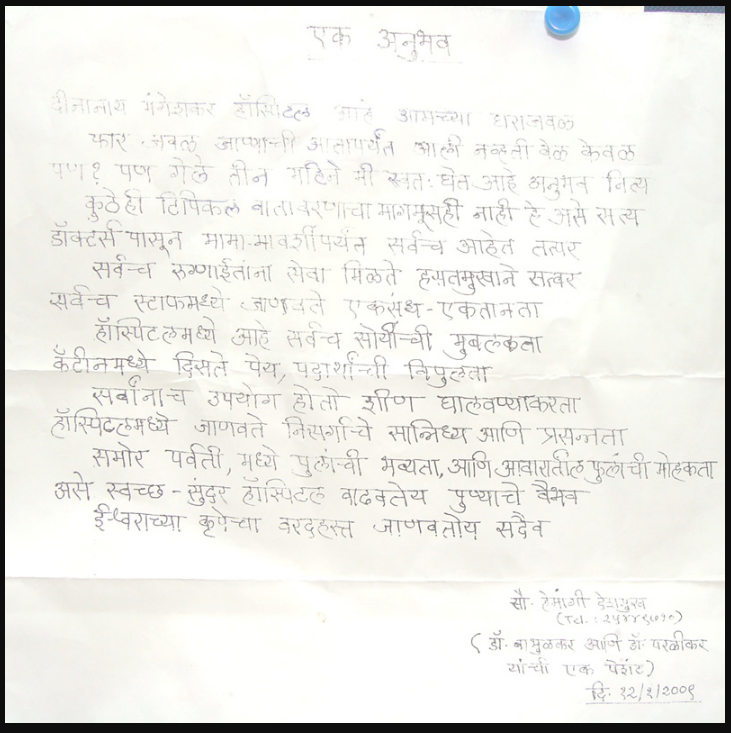 एक अनुभव
दीनानाथ मंगेशकर हॉस्पिटल आहे आमच्या घराजवळ
फार जवळ जाण्याची आतापर्यंत आली नव्हती वेळ केवळ
पण? पण गेले तीन महिने मी स्वतः घेत आहे अनुभव नित्य
कुठेही टिपिकल वातावरणाचा मागमूसही नाही हे असे सत्य
डॉक्टर्स पासून मामा-मावशींपर्यंत सर्वच आहेत तत्पर
सर्वच रुग्णाईतांना सेवा मिळते हसतमुखाने सत्वर
सर्वच स्टाफमध्ये जाणवते एकसंध-एकतानता
हॉस्पिटलमध्ये आहे सर्वच सोयींची मुबलकता
कँटीनमध्ये दिसते पेय, पदार्थांची विपुलता
सर्वांनाच उपयोग होतो शीण घालवण्याकरता
हॉस्पिटलमध्ये जाणवते निसर्गाचे सान्निध्य आणि प्रसन्नता
समोर पर्वती, मध्ये पुलांची भव्यता, आणि आवारातील फुलांची मोहकता
असे स्वच्छ-सुंदर हॉस्पिटल वाढवतेय पुण्याचे वैभव
ईश्वराच्या कृपेचा वरदहस्त जाणवतोय सदैव
सौ. हेमांगी देशमुख
(Tel. :
(डॉ. आणि डॉ. परळीकर
यांची एक पेशंट)
दि. १२/१/२००९